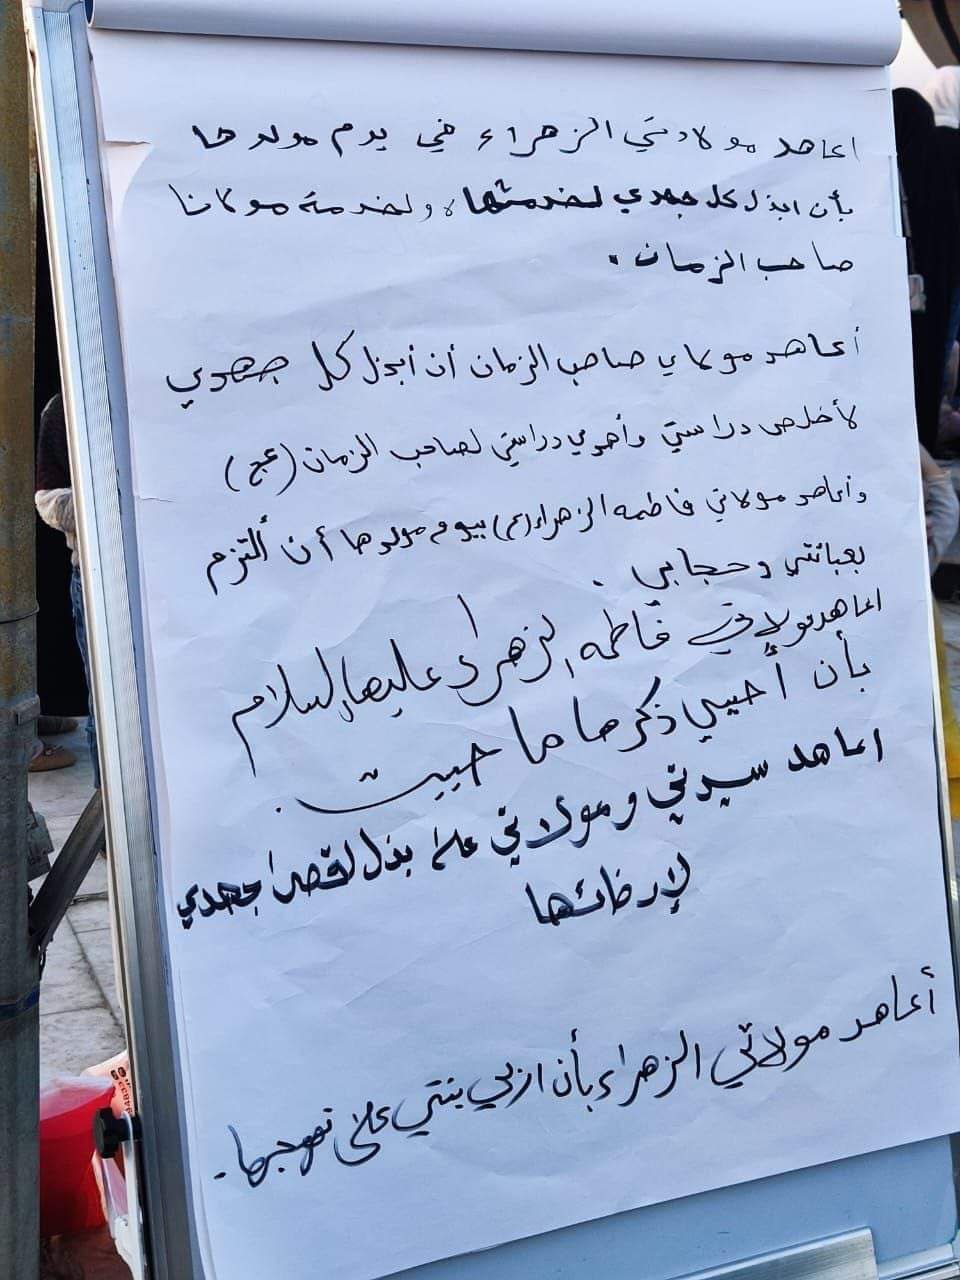 اعاهد مولاتي الزهراء في يوم مولدها
بأن ابذل كل جهدي لخدمتها ولخدمة مولانا
صاحب الزمان.
أعاهد مولاي صاحب الزمان أن أبذل كل جهدي
لأخلص دراستي وأهدي دراستي لصاحب الزمان (عج)
وأعاهد مولاتي فاطمه الزهراء (ع) بيوم مولدها أن ألتزم
بعبائتي وحجابي.
اعاهد مولاتي فاطمه الزهراء عليها السلام
بأن أحيي ذكرها ما حييت.
اعاهد سيدتي ومولاتي على بذل لقصى جهدي
لإرضائها
أعاهد مولاتي الزهراء بأن اربي بنتي على نهجها.